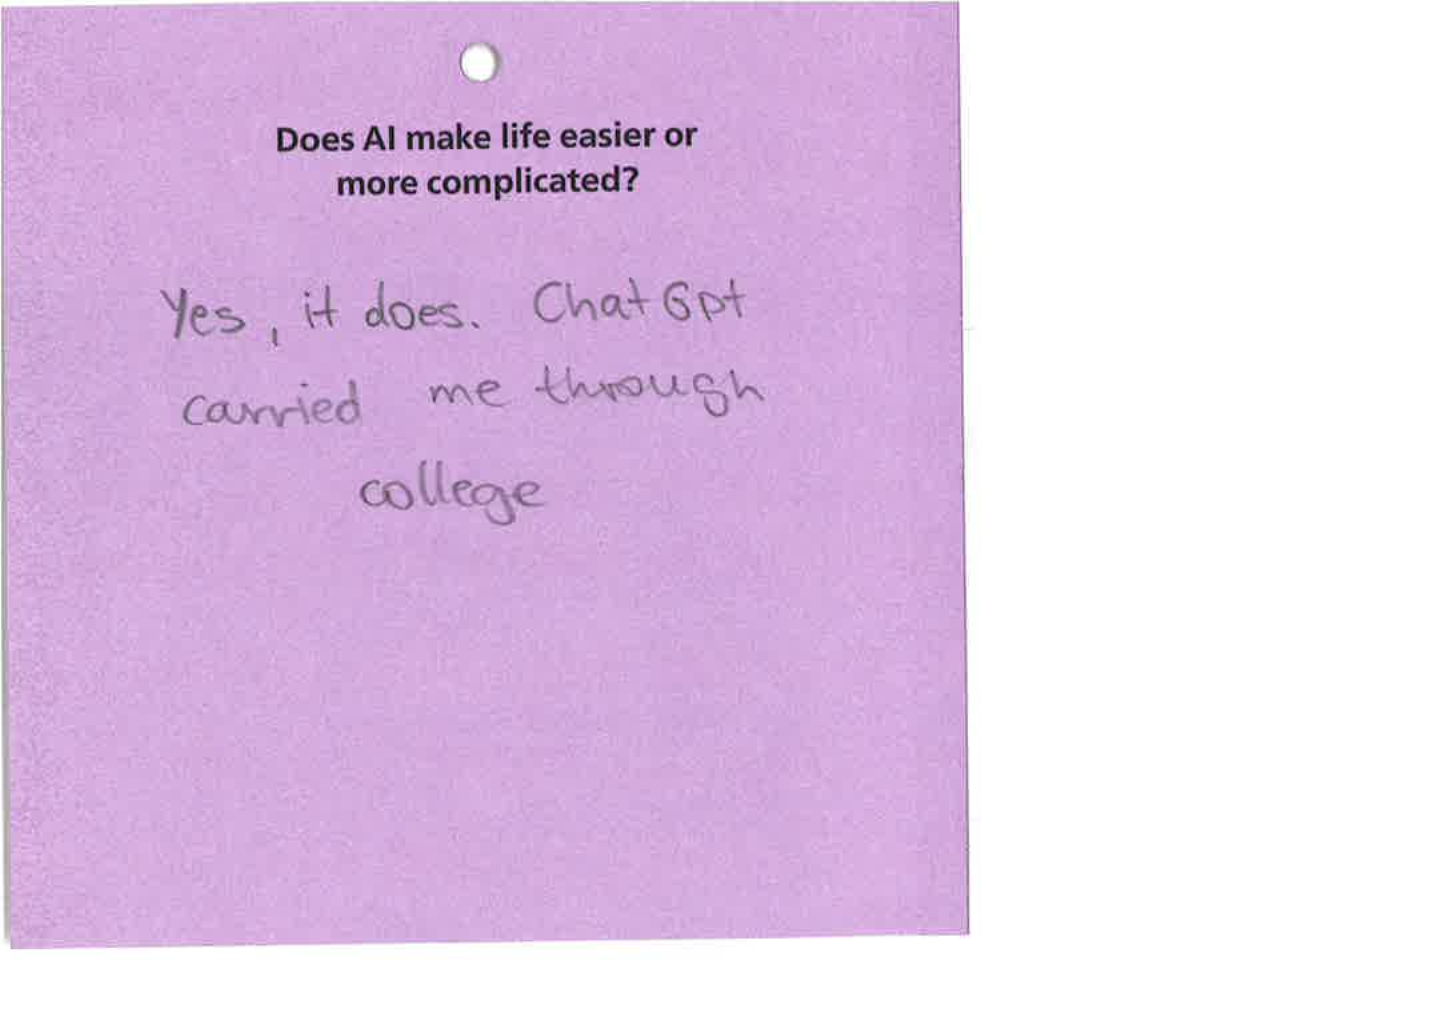 Does AI make life easier or
more complicated?
Yes, it does. Chat Gpt
carried me through
college